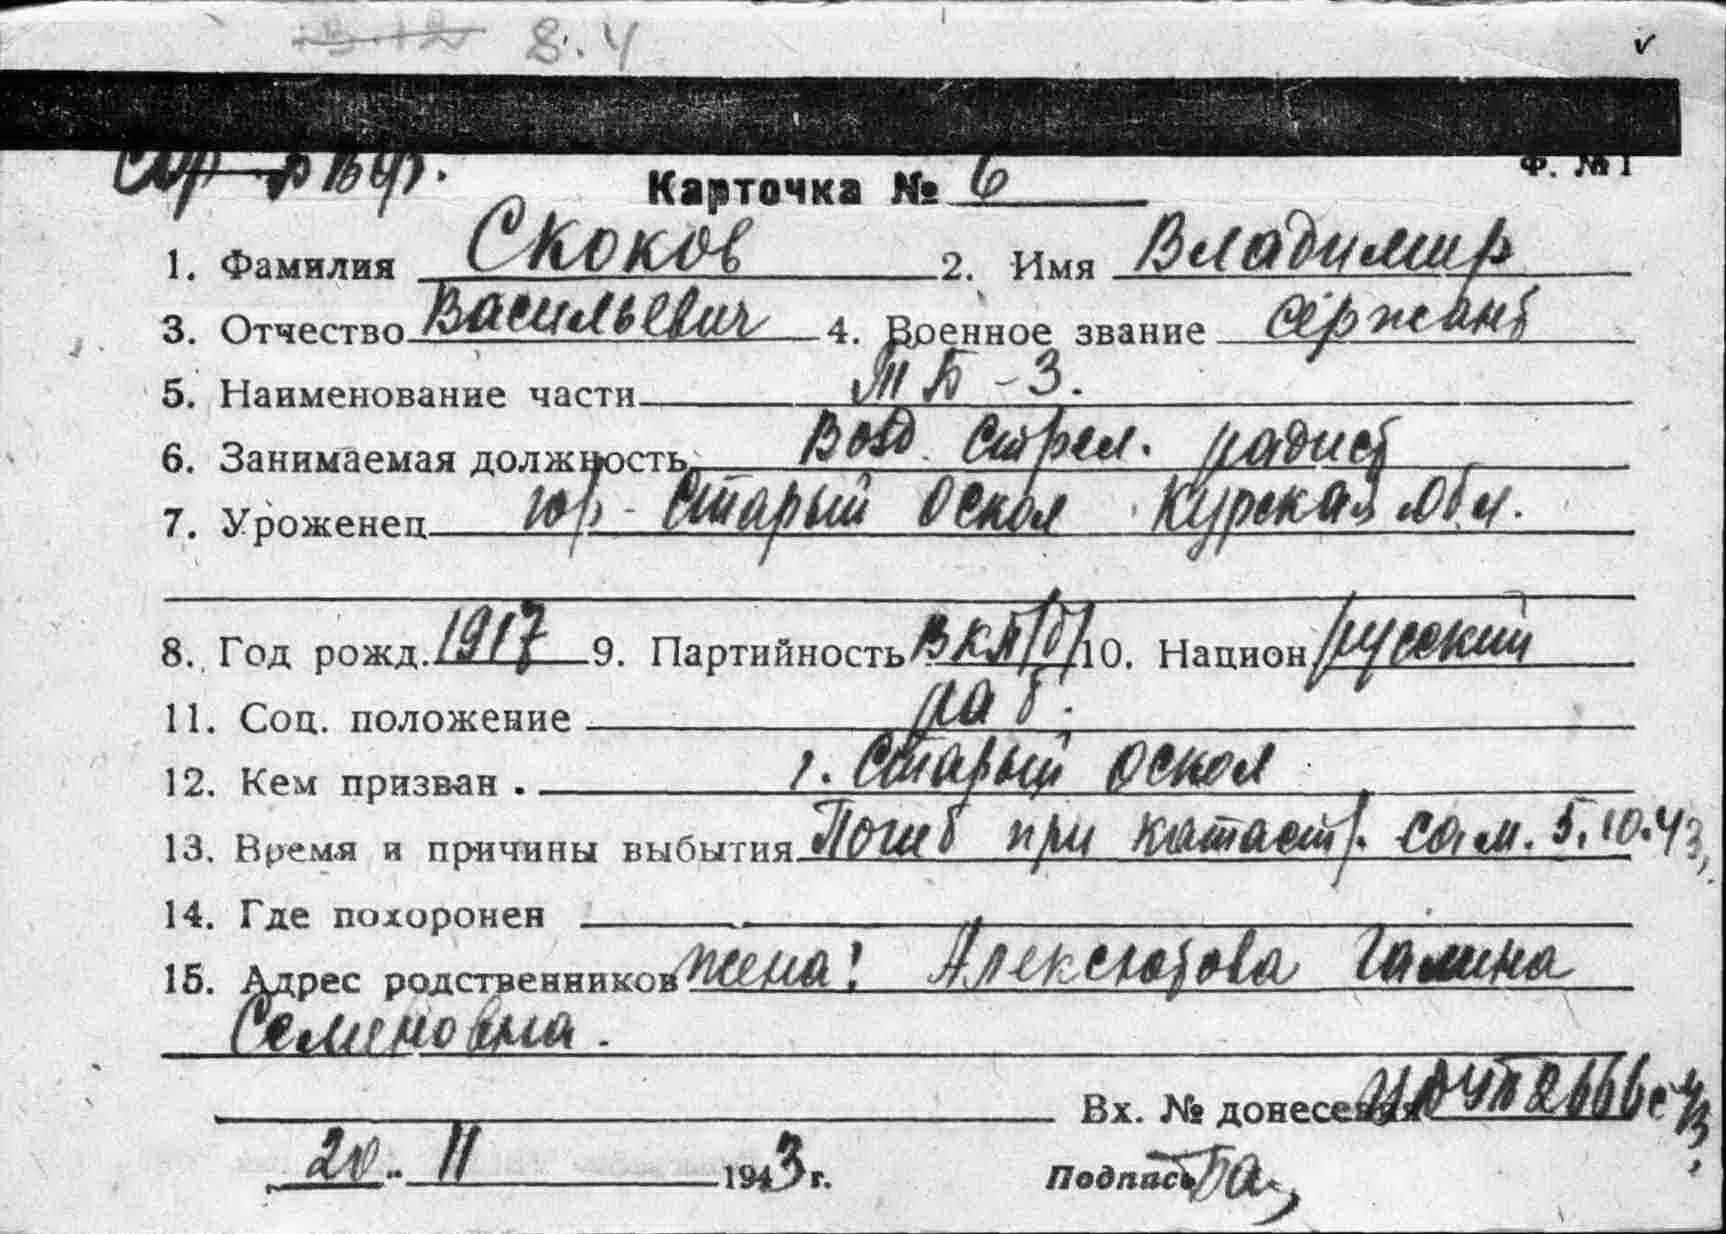 8.4
Ф. №1
Карточка № 6
1. Фамилия Скоков 2. Имя Владимир
3. Отчество Васильевич 4. Военное звание сержант
5. Наименование части ТБ-3.
6. Занимаемая должность Возд. стрел. радист
7. Уроженец гор. Старый Оскол Курская обл.
8. Год рожд. 1917 9. Партийность ВКП/б/ 10. Национ русский
11. Соц. положение раб.
12. Кем призван . г. Старый Оскол
13. Время и причины выбытия Погиб при катастр. сам. 5.10.43,
14. Где похоронен
15. Адрес родственников жена: Алексютова Галина
Семеновна.
Вх. № донесения
20. 11 1943 г. Подпись